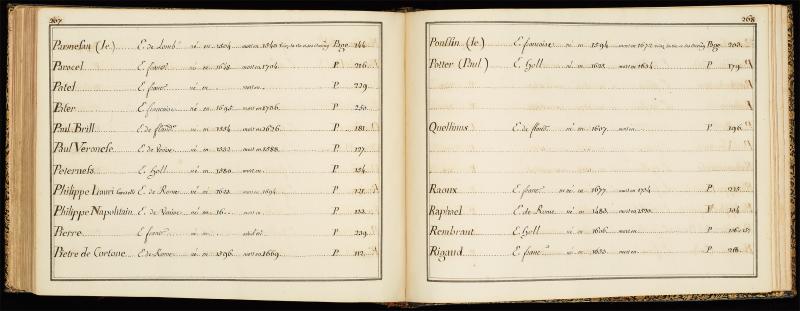 267
Parmesan (le) E. de Lomb. né en 1504 mort en 1540 Page 144
Parocel E. franc. né en 1648 mort en 1704 P. 216
Patel E. franc. né en mort en P. 229
Pater E. françoise né en 1695 mort en 1736 P. 250
Paul Brill E. de fland. né en 1554 mort en 1626 P. 181
Paul Veronese E. de Venise né en 1532 mort en 1588 P. 127
Peterness E. Holl. né en 1580 mort en P. 154
Philippe Lauri E. de Rome né en 1623 mort en 1694 P. 121
Philippe Napolitain E. de Venise né en 16.. mort en P. 133
Pierre E. franc. né en P. 239
Pietre de Cortone E. de Rome né en 1596 mort en 1669 P. 112
268
Poussin (le) E. françoise né en 1594 mort en 1672 Page 203
Potter (Paul) E. Holl. né en 1625 mort en 1654 P. 179
Quellinus E. de fland. né en 1607 mort en P. 196
Raoux E. franc. né en 1677 mort en 1734 P. 225
Raphael E. de Rome né en 1483 mort en 1520 P. 104
Rembrant E. Holl. né en 1606 mort en P. 156
Rigaud E. franc. né en 1663 mort en P. 218